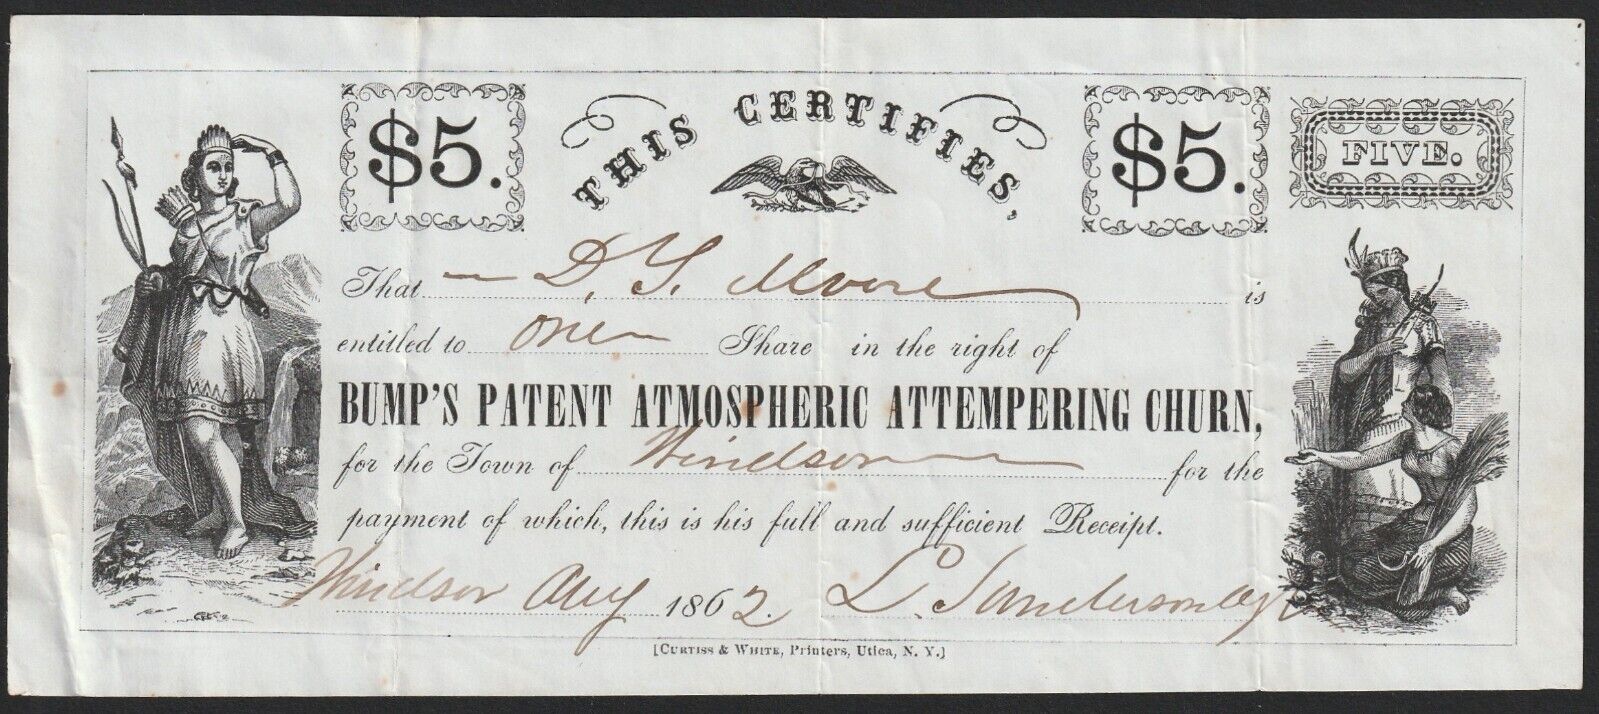 $5. THIS CERTIFIES, $5. FIVE.
That D. Y. Moore is
entitled to one Share in the right of
BUMP'S PATENT ATMOSPHERIC ATTEMPERING CHURN,
for the Town of Windsor for the
payment of which, this is his full and sufficient Receipt.
Windsor Aug 1862. L. Sanderson agt
[CURTISS & WHITE, Printers, Utica, N. Y.]